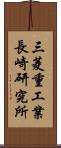 三菱重工業
長崎研究所